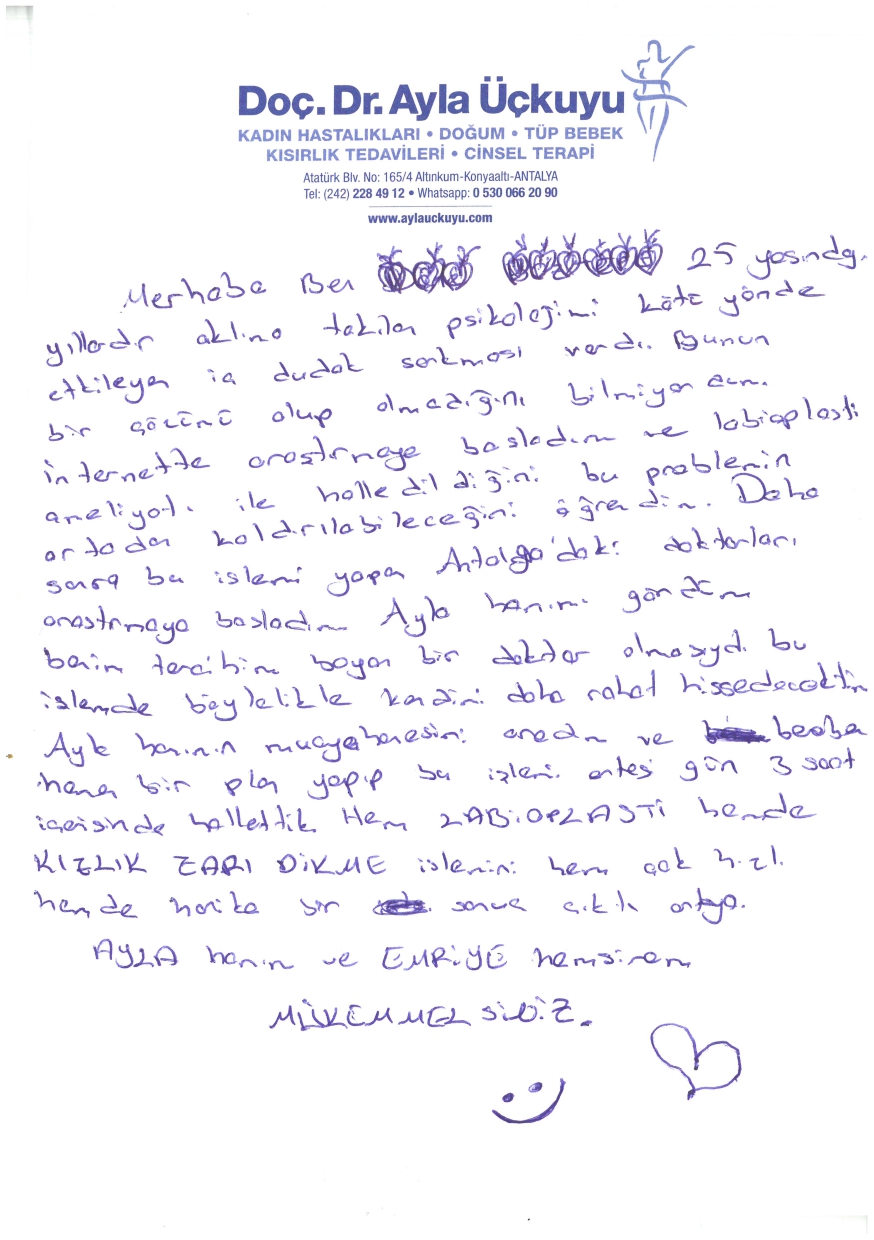 Doç. Dr. Ayla Üçkuyu
KADIN HASTALIKLARI • DOĞUM • TÜP BEBEK
KISIRLIK TEDAVİLERİ • CİNSEL TERAPİ
Atatürk Blv. No: 165/4 Altınkum-Konyaaltı-ANTALYA
Tel: (242) 228 49 12 • Whatsapp: 0 530 066 20 90
www.aylauckuyu.com
Merhaba Ben 25 yaşında.
yıllardır aklıma takılan psikolojimi kötü yönde
etkileyen iç dudak sarkması vardı. Bunun
bir çözümü olup olmadığını bilmiyordum.
internette araştırmaya başladım ve labioplasti
ameliyatı ile halledildiğini bu problemin
ortadan kaldırılabileceğini öğrendim. Daha
sonra bu işlemi yapan Antalya'daki doktorları
araştırmaya başladım Ayla hanımı gördüm
benim tercihim bayan bir doktor olmasıydı bu
işlemde böylelikle kendimi daha rahat hissedecektim
Ayla hanımın muayehanesini aradım ve beraber
hemen bir plan yapıp bu işlemi ertesi gün 3 saat
içerisinde hallettik Hem LABİOPLASTİ hemde
KIZLIK ZARI DİKME işlemini hem çok hızlı
hemde harika bir sonuç çıktı ortaya.
AYLA hanım ve EMRİYE hemşirem
MÜKEMMELSİNİZ.